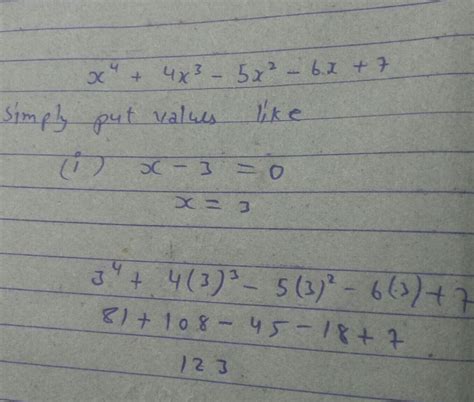 x⁴ + 4x³ - 5x² - 6x + 7
Simply put values like
(i) x - 3 = 0
x = 3
3⁴ + 4(3)³ - 5(3)² - 6(3) + 7
81 + 108 - 45 - 18 + 7
123